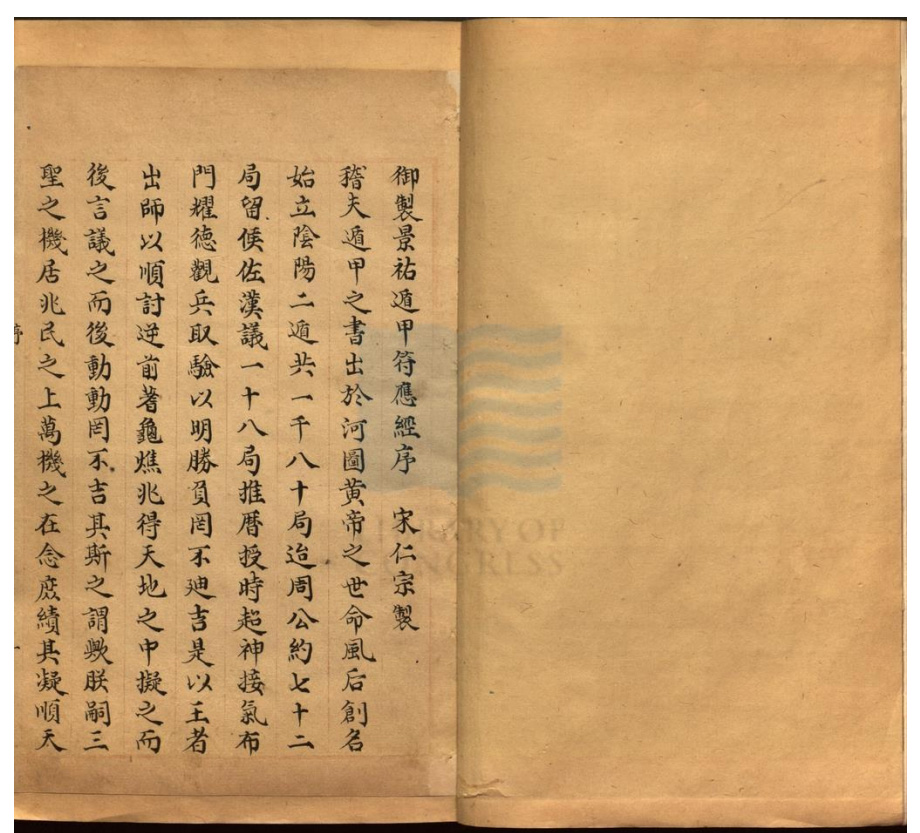 御製景祐遁甲符應經序　宋仁宗製
稽夫遁甲之書出於河圖黃帝之世命風后創名
始立陰陽二遁共一千八十局迨周公約七十二
局留侯佐漢議一十八局推曆授時超神接氣布
門耀德觀兵取驗以明勝負罔不迪吉是以王者
出師以順討逆前蓍龜燋兆得天地之中擬之而
後言議之而後動動罔不吉其斯之謂歟朕嗣三
聖之機居兆民之上萬機之在念庶績其凝順天
序
一
LIBRARY OF
CONGRESS